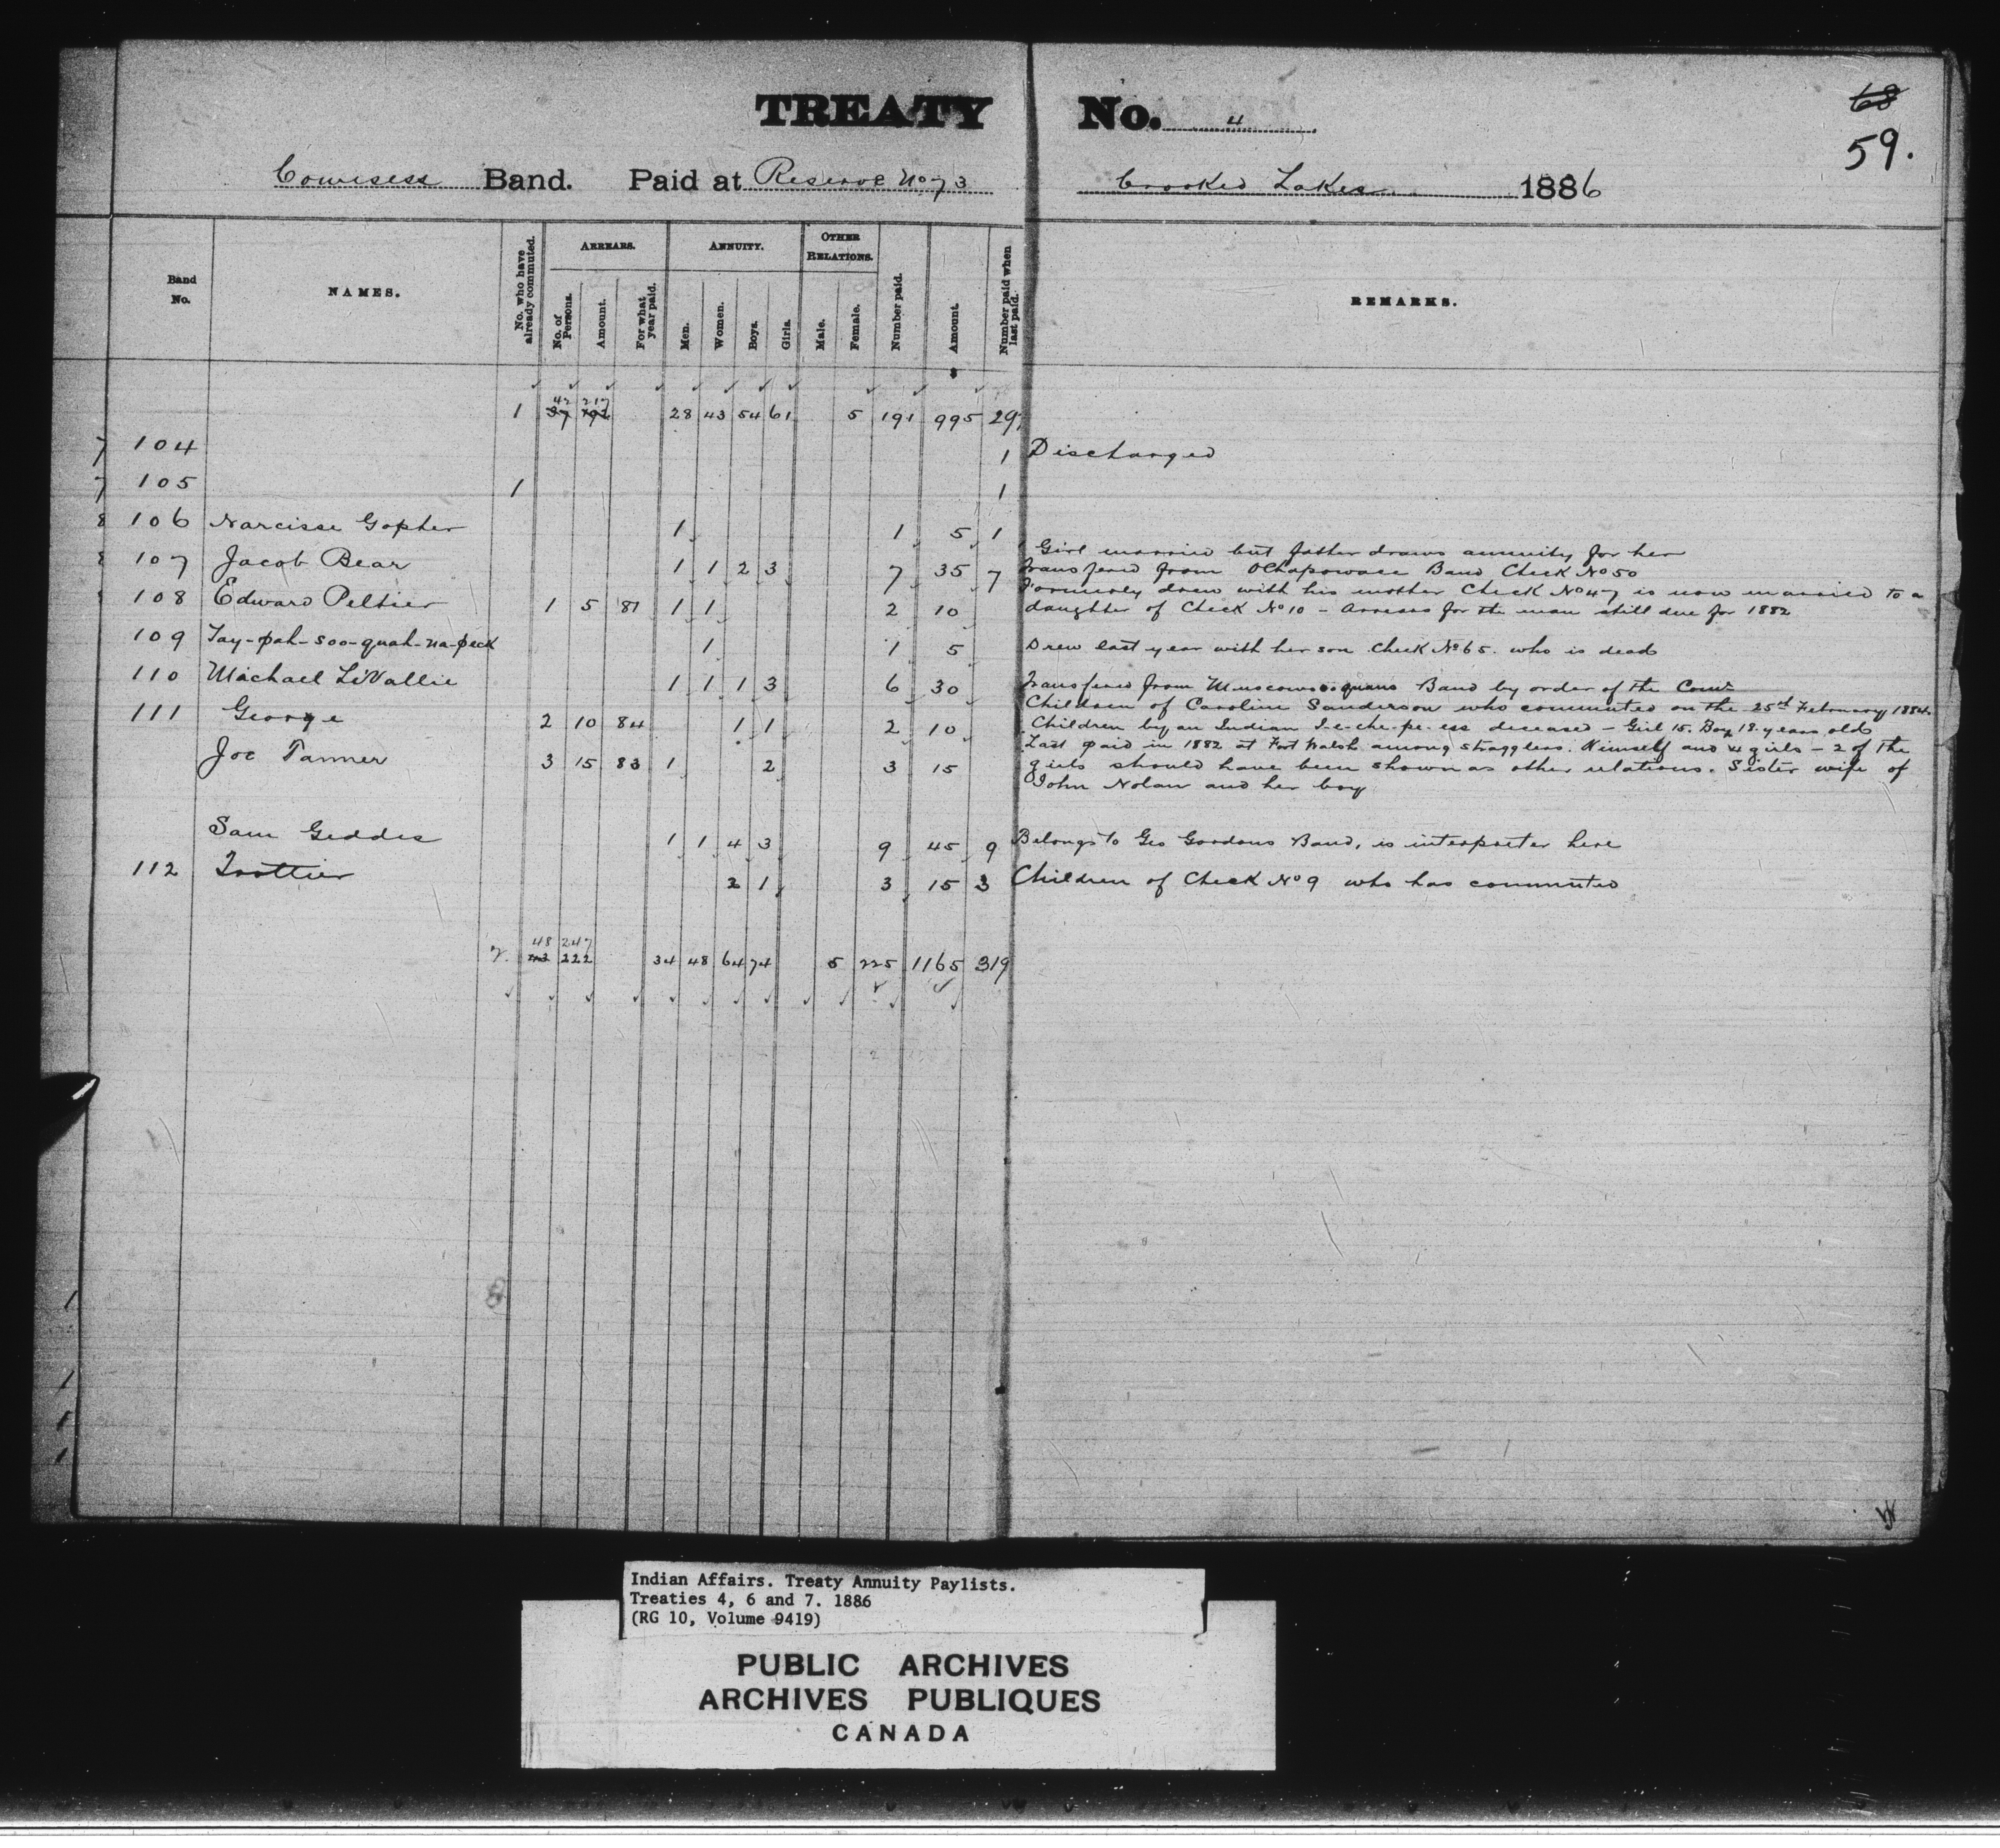 68
59.
TREATY No. 4
Cowesess Band. Paid at Reserve No 73 Crooked Lakes 1886
Band No.
NAMES.
No. who have already commuted.
ARREARS.
No. of Persons.
Amount.
For what year paid.
ANNUITY.
Men.
Women.
Boys.
Girls.
OTHER RELATIONS.
Male.
Female.
Number paid.
Amount.
Number paid when last paid.
REMARKS.
42 217
1 37 192 28 43 54 61 5 191 995 29
7 104 1 Discharged
7 105 1 1
8 106 Narcisse Gopher 1 1 5 1
Girl married but father draws annuity for her
107 Jacob Bear 1 1 2 3 7 35 7 Transfered from Ochapowace Band Check No 50
Formerly drew with his mother Check No 47 is now married to a
108 Edward Peltier 1 5 81 1 1 2 10 daughter of Check No 10 - Arrears for the man still due for 1882
109 Tay-pah-soo-quah-na-peck 1 1 5 Drew last year with her son Check No 65. who is dead
110 Michael LiVallie 1 1 1 3 6 30 Transfered from Muscowequans Band by order of the Comr
Children of Caroline Sanderson who commuted on the 25th February 1884.
111 George 2 10 84 1 1 2 10 Children by an Indian I-e-che-pe-ess deceased - Girl 15. Boy 18 years old
Last paid in 1882 at Fort Walsh among stragglers. Himself and 4 girls - 2 of the
Joe Tanner 3 15 83 1 2 3 15 girls should have been shown as other relations. Sister wife of
John Nolan and her boy
Sam Geddes 1 1 4 3 9 45 9 Belongs to Geo Gordons Band, is interpreter here
112 Trottier 2 1 3 15 3 Children of Check No 9 who has commuted
48 247
2. 43 222 34 48 64 74 5 225 1165 319
Indian Affairs. Treaty Annuity Paylists.
Treaties 4, 6 and 7. 1886
(RG 10, Volume 9419)
PUBLIC ARCHIVES
ARCHIVES PUBLIQUES
CANADA